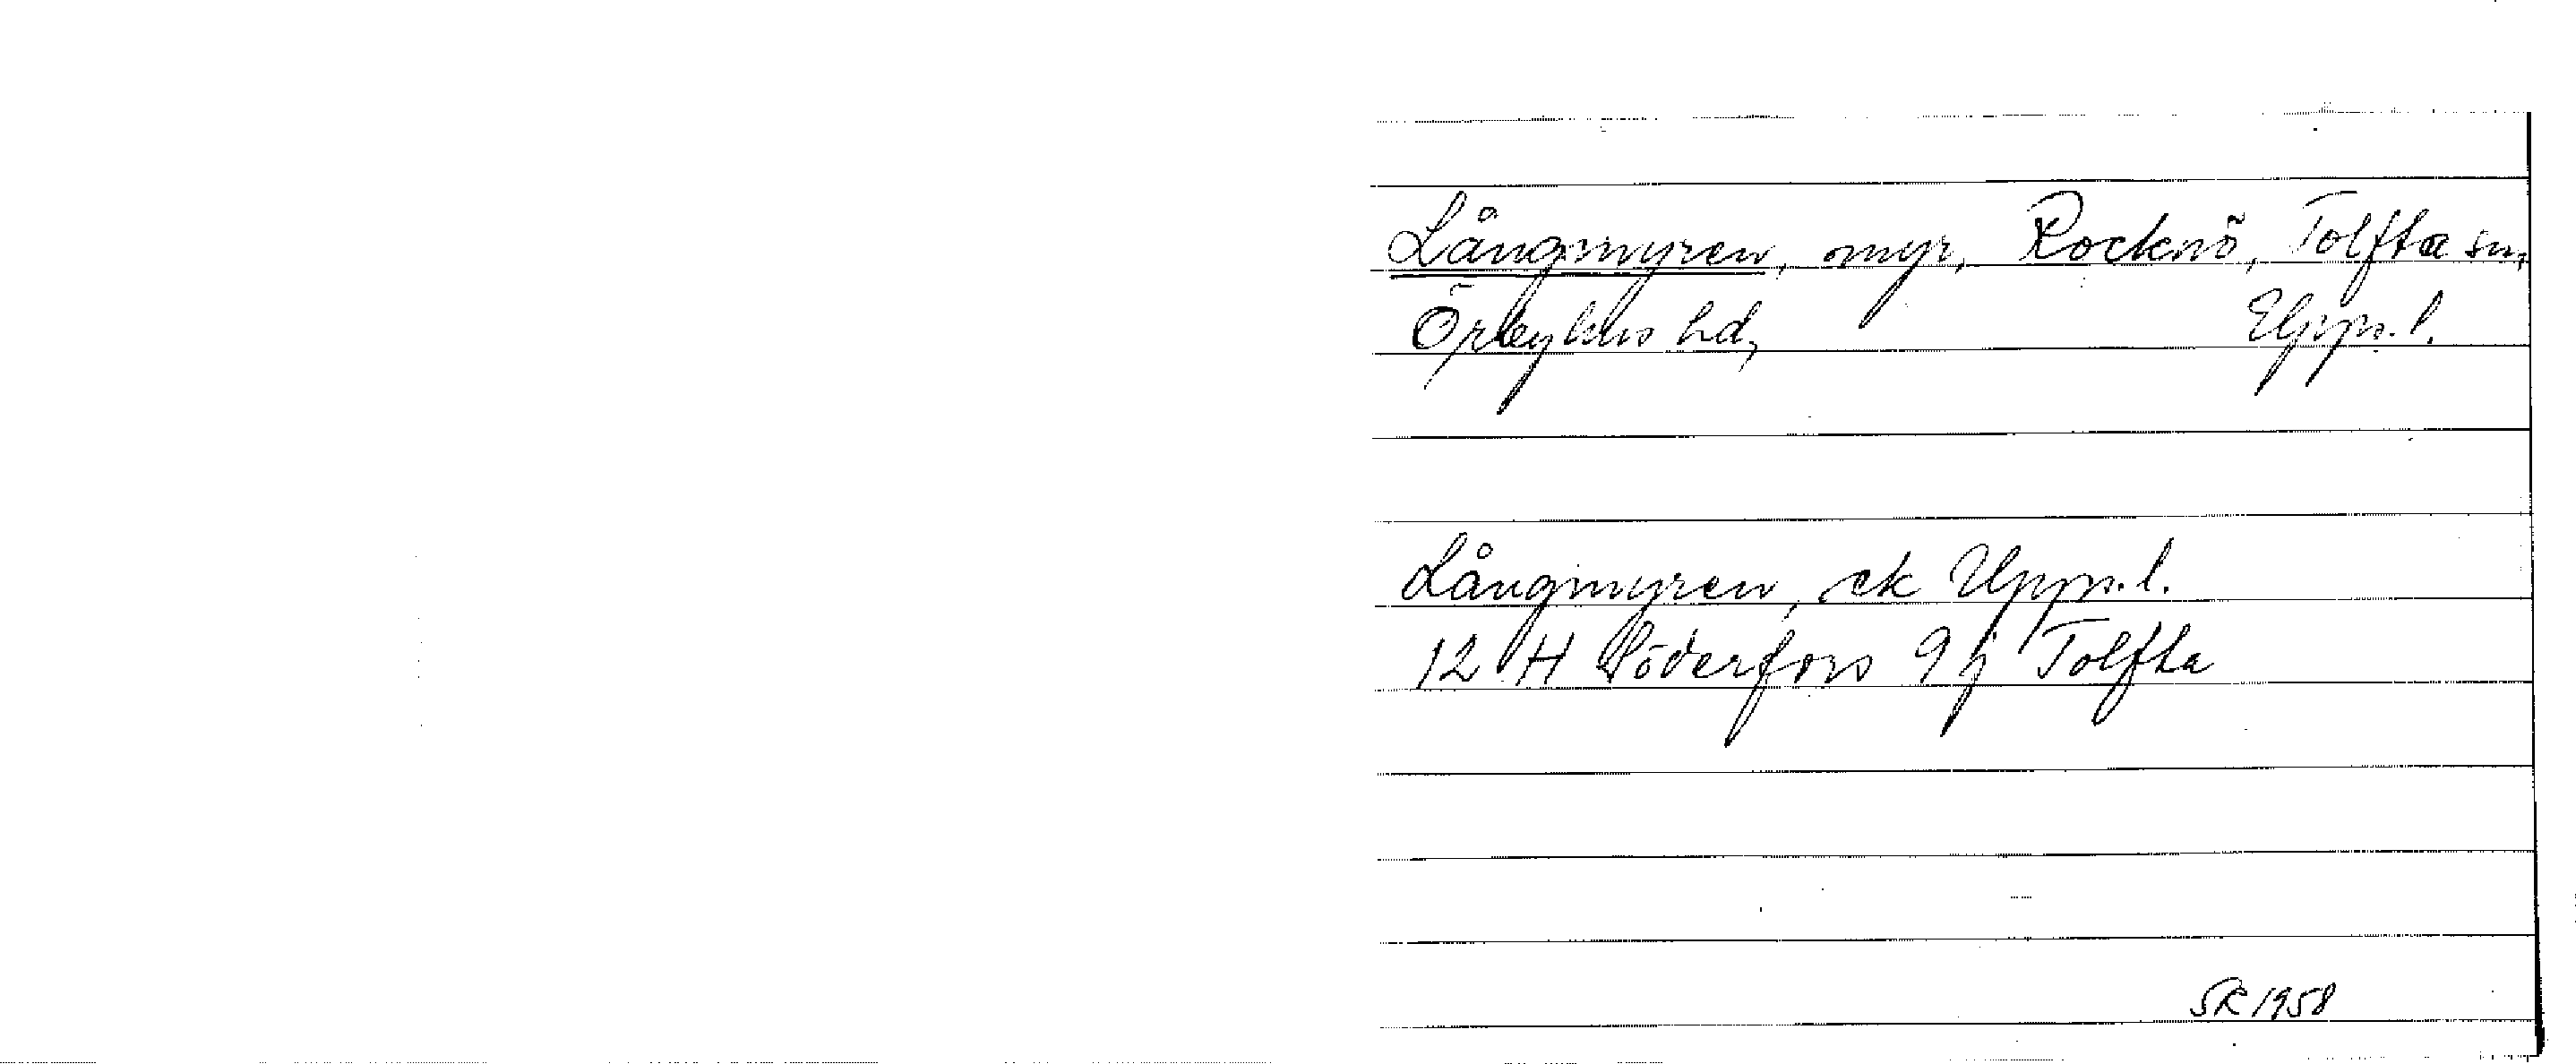 Långmyren, myr, Rocknö, Tolfta sn,
Örbyhus hd, Upps. l.
Långmyren, ek Upps. l.
12 H Söderfors 9 j Tolfta
SR 1958